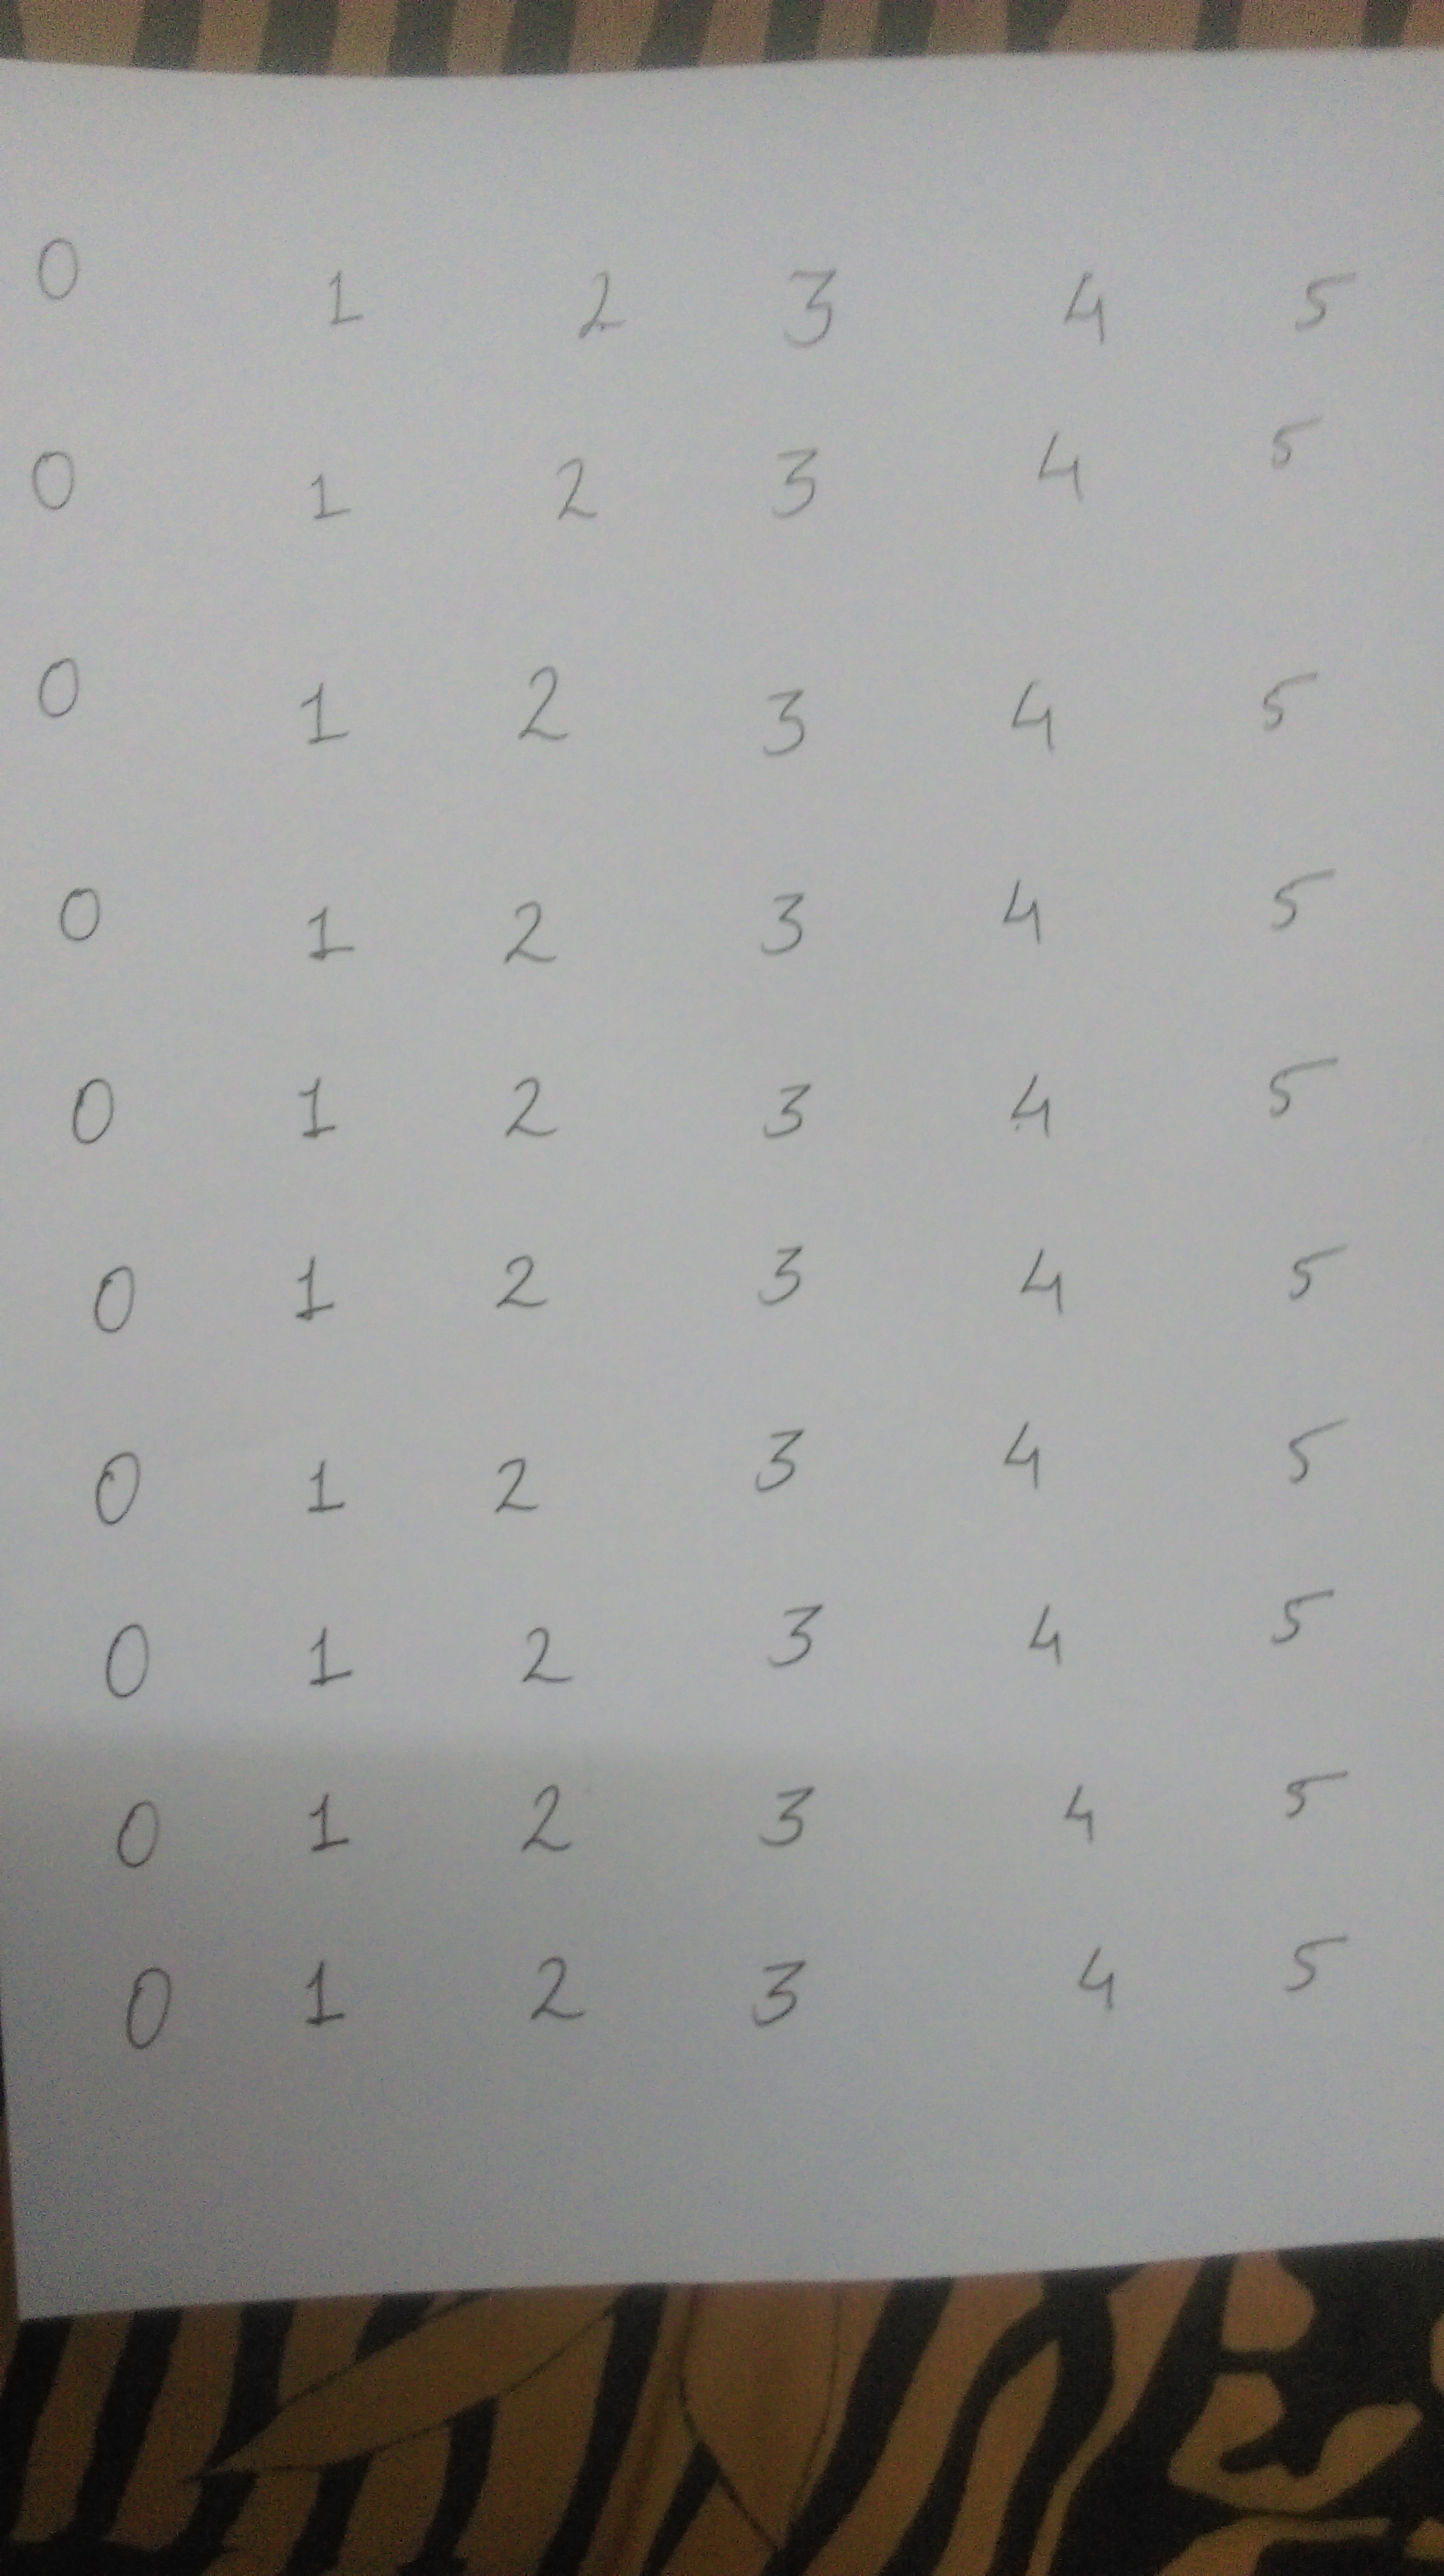 0 1 2 3 4 5
0 1 2 3 4 5
0 1 2 3 4 5
0 1 2 3 4 5
0 1 2 3 4 5
0 1 2 3 4 5
0 1 2 3 4 5
0 1 2 3 4 5
0 1 2 3 4 5
0 1 2 3 4 5